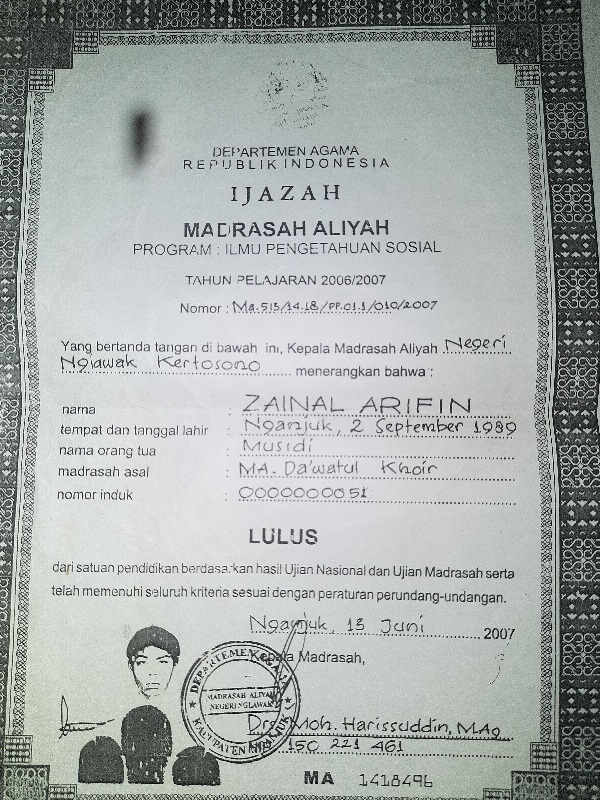 DEPARTEMEN AGAMA
REPUBLIK INDONESIA
IJAZAH
MADRASAH ALIYAH
PROGRAM : ILMU PENGETAHUAN SOSIAL
TAHUN PELAJARAN 2006/2007
Nomor : Ma.515/14.18/PP.01.1/010/2007
Yang bertanda tangan di bawah ini, Kepala Madrasah Aliyah Negeri
Nglawak Kertosono menerangkan bahwa :
nama : ZAINAL ARIFIN
tempat dan tanggal lahir : Nganjuk, 2 September 1989
nama orang tua : Musidi
madrasah asal : MA. Da'watul Khoir
nomor induk : 0000000051
LULUS
dari satuan pendidikan berdasarkan hasil Ujian Nasional dan Ujian Madrasah serta
telah memenuhi seluruh kriteria sesuai dengan peraturan perundang-undangan.
Nganjuk, 13 Juni 2007
Kepala Madrasah,
DEPARTEMEN AGAMA
MADRASAH ALIYAH
NEGERI NGLAWAK
KABUPATEN NGANJUK
Drs. Moh. Harissuddin, M.Ag
150 221 461
MA 1418496